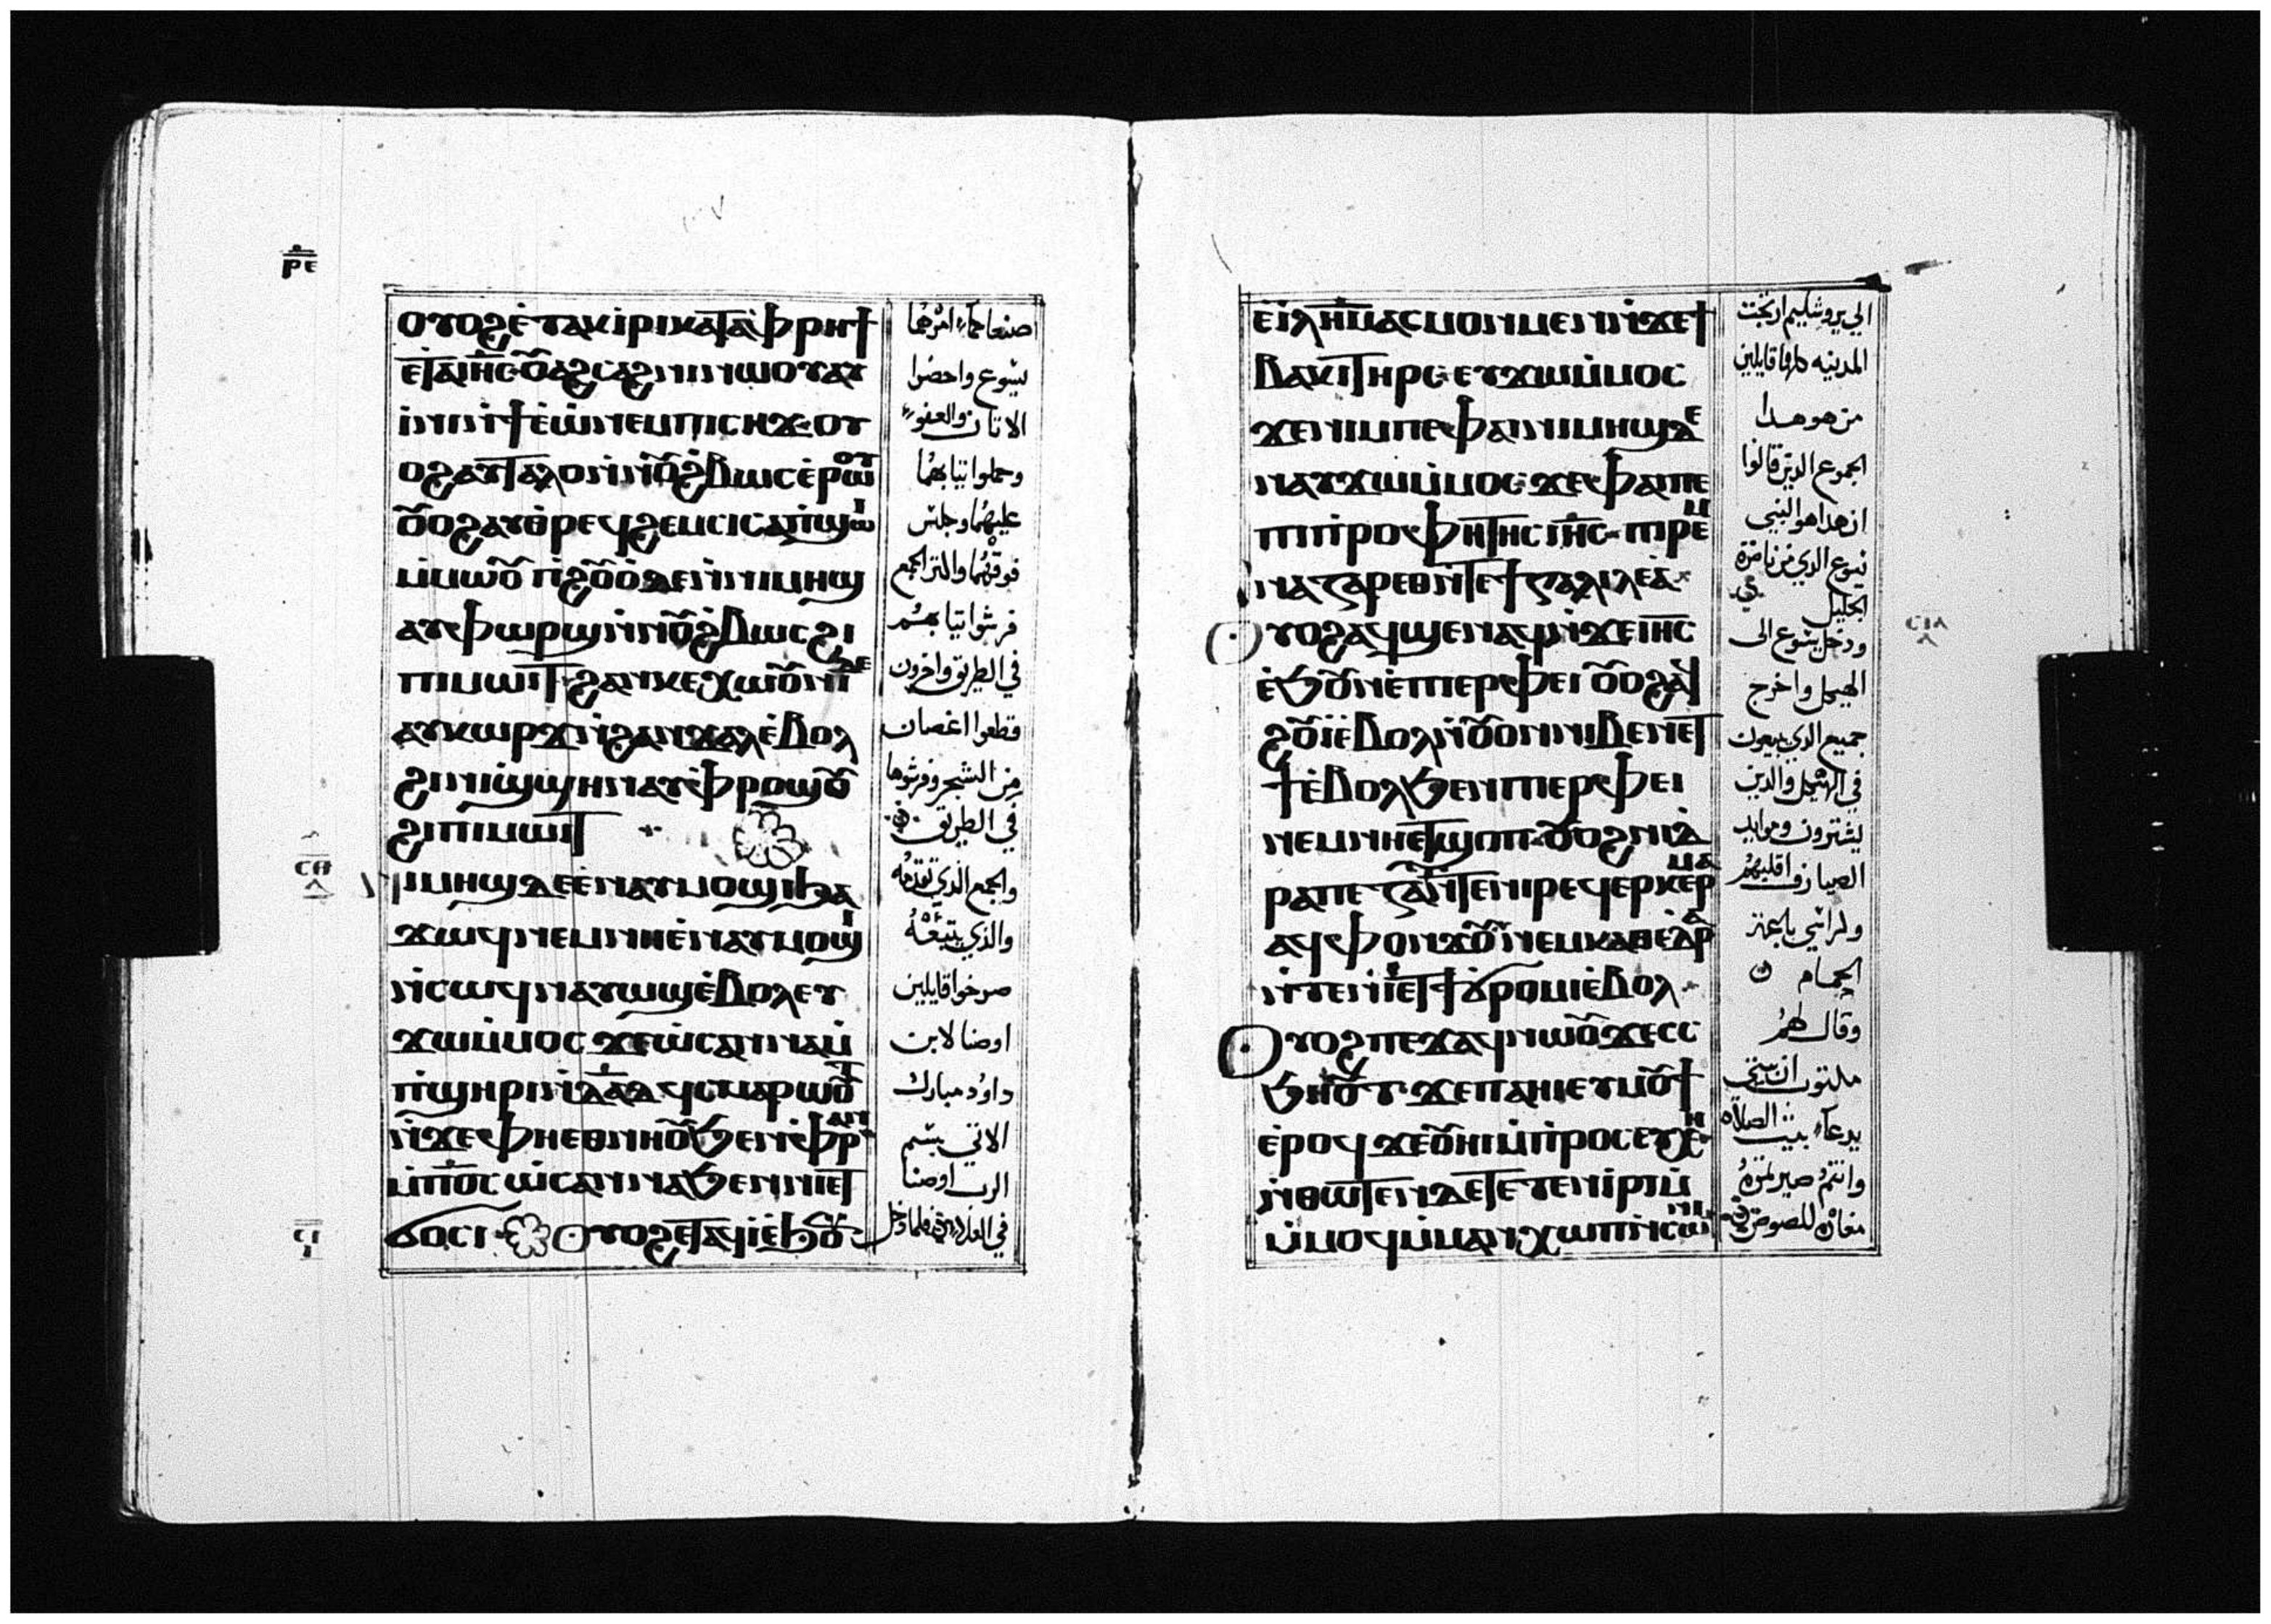 ⲣⲉ
ⲟⲩⲟϩ ⲉ̀ⲧⲁⲩⲓ̀ⲣⲓ ⲕⲁⲧⲁ ⲫ̀ⲣⲏϯ
ⲉⲧⲁ ⲓⲏⲥ ⲟⲩⲁϩⲥⲁϩⲛⲓ ⲛⲱⲟⲩ ⲁⲩ
ⲓ̀ⲛⲓ ⲛ̀ϯⲉ̀ⲱ̀ ⲛⲉⲙ ⲡⲓⲥⲏϫ ⲟⲩ
ⲟϩ ⲁⲩⲧⲁⲗⲟ ⲛ̀ⲛⲟⲩϩ̀ⲃⲱⲥ ⲉ̀ⲣⲱⲟⲩ
ⲟⲩⲟϩ ⲁⲩⲑⲣⲉϥϩⲉⲙⲥⲓ ⲥⲁⲡ̀ϣⲱⲓ
ⲙ̀ⲙⲱⲟⲩ ⲡⲓϩⲟⲩⲟ̀ ⲇⲉ ⲛ̀ⲛⲓⲙⲏϣ
ⲁⲩⲫⲱⲣϣ ⲛ̀ⲛⲟⲩϩ̀ⲃⲱⲥ ϩⲓ
ⲡⲓⲙⲱⲓⲧ ϩⲁⲛⲕⲉⲭⲱⲟⲩⲛⲓ ⲇⲉ
ⲁⲩⲕⲱⲣϫ ⲛ̀ϩⲁⲛϫⲁⲗ ⲉ̀ⲃⲟⲗ
ϩⲓ ⲛⲓϣ̀ϣⲏⲛ ⲁⲩⲫⲣⲟϣⲟⲩ
ϩⲓ ⲡⲓⲙⲱⲓⲧ
ⲥⲏ
ⲛⲓⲙⲏϣ ⲇⲉ ⲉ̀ⲛⲁⲩⲙⲟϣⲓ ϧⲁ
ϫⲱϥ ⲛⲉⲙ ⲛⲏ ⲉ̀ⲛⲁⲩⲙⲟϣⲓ
ⲛ̀ⲥⲱϥ ⲛⲁⲩⲱϣ ⲉ̀ⲃⲟⲗ ⲉⲩ
ϫⲱ ⲙ̀ⲙⲟⲥ ϫⲉ ⲱ̀ⲥⲁⲛⲛⲁ ⲙ̀
ⲡ̀ϣⲏⲣⲓ ⲛ̀ⲇⲁⲇ ϥ̀ⲥⲙⲁⲣⲱⲟⲩⲧ
ⲛ̀ϫⲉ ⲫⲏⲉⲑⲛⲏⲟⲩ ϧⲉⲛ ⲫ̀ⲣⲁⲛ
ⲙ̀ⲡ̀ⲟⲥ ⲱ̀ⲥⲁⲛⲛⲁ ϧⲉⲛ ⲛⲏⲉⲧ
ϭⲟⲥⲓ ⲟⲩⲟϩ ⲉⲧⲁϥⲓ̀ ⲉ̀ϧⲟⲩⲛ
صنعا كما امرهما
يسوع واحضرا
الاتان والعفو
وحملوا تيابهما
عليهما وجلس
فوقهما والتر الجمع
فرشوا تيابهم
في الطريق واخرون
قطعوا اغصان
من الشجر وفرشوها
في الطريق
والجمع الذي تقدمه
والذي يتبعه
صرخوا قايلين
اوصنا لابن
داود مبارك
الاتي بسم
الرب اوصنا
في العلا فلما دخل
ⲉ̀ⲓⲗⲏⲙ ⲁⲥⲙⲟⲛⲙⲉⲛ ⲛ̀ϫⲉ ϯ
ⲃⲁⲕⲓ ⲧⲏⲣⲥ ⲉⲩϫⲱ ⲙ̀ⲙⲟⲥ
ϫⲉ ⲛⲓⲙ ⲡⲉ ⲫⲁⲓ ⲛⲓⲙⲏϣ ⲇⲉ
ⲛⲁⲩϫⲱ ⲙ̀ⲙⲟⲥ ϫⲉ ⲫⲁⲓ ⲡⲉ
ⲡⲓⲡ̀ⲣⲟⲫⲏⲧⲏⲥ ⲓⲏⲥ ⲡⲓⲣⲉⲙ
ⲛⲁⲍⲁⲣⲉⲑ ⲛ̀ⲧⲉ ϯⲅⲁⲗⲓⲗⲉⲁ
ⲟⲩⲟϩ ⲁϥϣⲉⲛⲁϥ ⲛ̀ϫⲉ ⲓⲏⲥ
ⲉ̀ϧⲟⲩⲛ ⲉ̀ⲡⲓⲉⲣⲫⲉⲓ ⲟⲩⲟϩ ⲁϥ
ϩⲟⲩⲓ̀ ⲉ̀ⲃⲟⲗ ⲛ̀ⲟⲩⲟⲛ ⲛⲓⲃⲉⲛ ⲉⲧ
ϯ ⲉ̀ⲃⲟⲗ ϧⲉⲛ ⲡⲓⲉⲣⲫⲉⲓ
ⲛⲉⲙ ⲛⲏⲉⲧϣⲱⲡ ⲟⲩⲟϩ ⲛⲓⲧ
ⲣⲁⲡⲉⲍⲁ ⲛ̀ⲧⲉ ⲛⲓⲣⲉϥⲉⲣⲕⲉⲣⲙⲁ
ⲁϥⲫⲟⲛϫⲟⲩ ⲛⲉⲙ ⲛⲓⲕⲁⲑⲉⲇⲣⲁ
ⲛ̀ⲧⲉ ⲛⲏⲉⲧϯ ϭⲣⲟⲙⲡⲓ ⲉ̀ⲃⲟⲗ
ⲟⲩⲟϩ ⲡⲉϫⲁϥ ⲛⲱⲟⲩ ϫⲉ ⲥⲥ
ϧⲏⲟⲩⲧ ϫⲉ ⲡⲁⲏⲓ ⲉⲩⲙⲟⲩϯ
ⲉ̀ⲣⲟϥ ϫⲉ ⲟⲩⲏⲓ ⲙ̀ⲡⲣⲟⲥⲉⲩⲭⲏ
ⲛ̀ⲑⲱⲧⲉⲛ ⲇⲉ ⲧⲉⲧⲉⲛⲓⲣⲓ ⲙ̀
ⲙⲟϥ ⲙ̀ⲙⲁⲛⲭⲱⲡ ⲛ̀ⲥⲟⲛⲓ
الي يروشليم ارتجت
المدينه كلها قايلين
من هو هدا
الجموع الدين قالوا
ان هدا هو النبي
يسوع الدي من ناصرة
الجليل
ودخل يسوع الى
الهيكل واخرج
جميع الدي يبيعون
في الهيكل والدين
يشترون وموايد
الصيارف اقلبهم
وكراسي باعة
الحمام
وقال لهم
مكتوب ان بيتي
يدعا بيت الصلاه
وانتم صيرتموه
مغارة للصوص
ⲥⲓⲁ